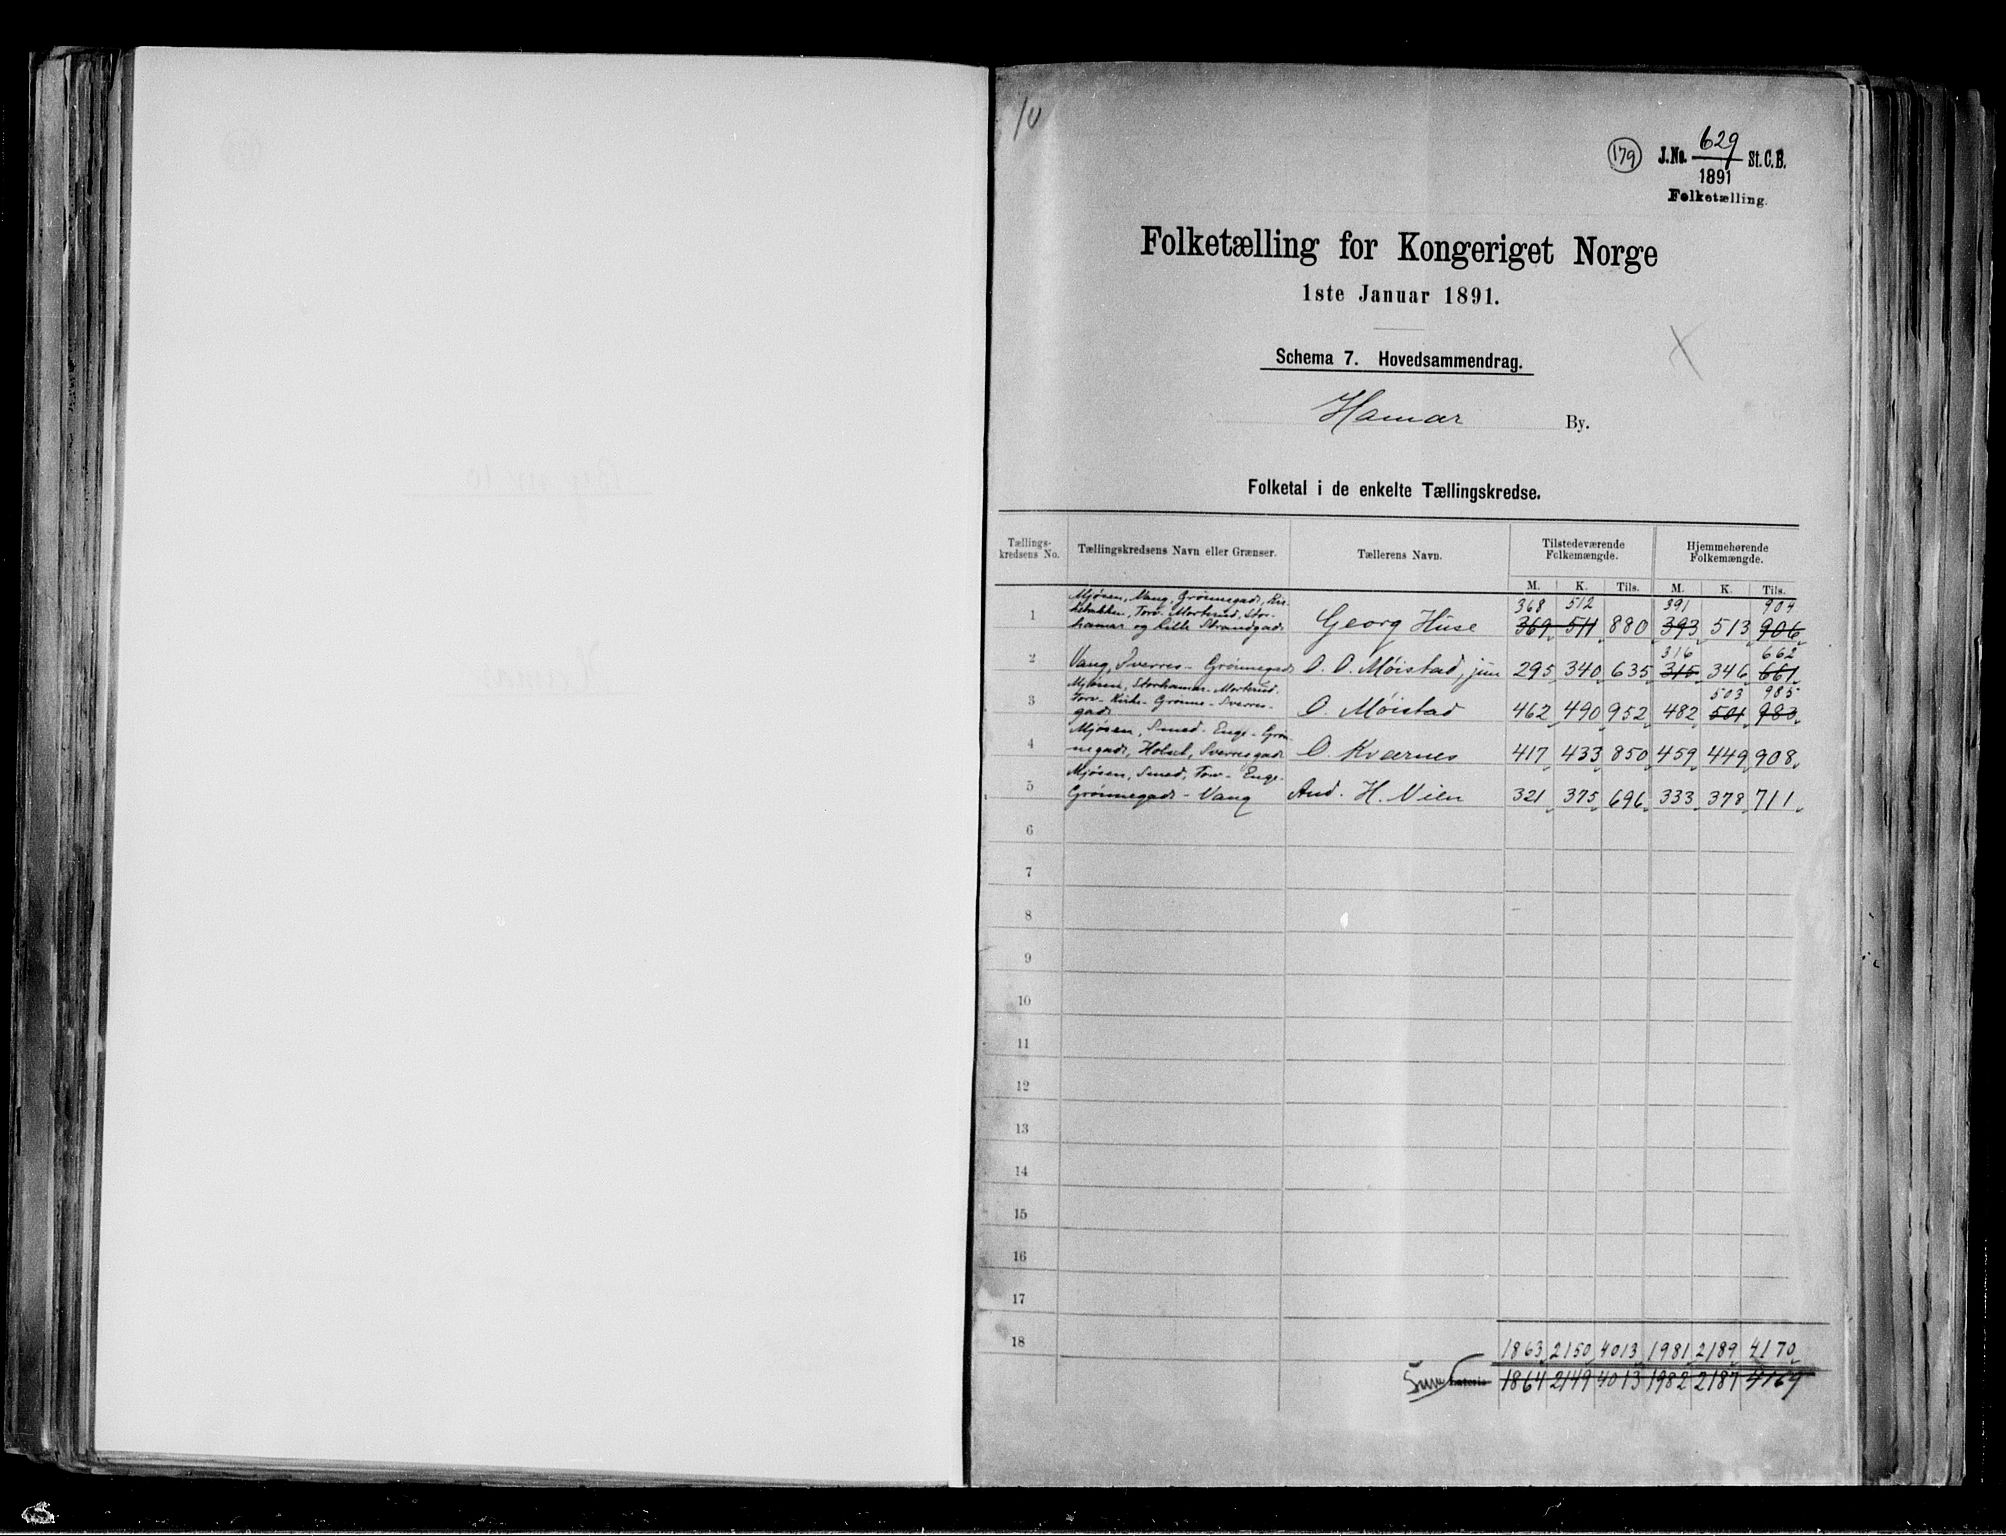 10
179 J.No. 629 St.C.B.
1891
Folketælling.
Folketælling for Kongeriget Norge
1ste Januar 1891.
Schema 7. Hovedsammendrag.
Hamar By.
Folketal i de enkelte Tællingskredse.
Tællings-kredsens No. Tællingskredsens Navn eller Grænser. Tællerens Navn. Tilstedeværende Folkemængde. Hjemmehørende Folkemængde.
M. K. Tils. M. K. Tils.
Mjøsen, Vang, Grønnegade, Kir- 368 512 391 904
kebakken, Torv- Morterud, Stor-
1 hamar og Lille Strandgade Georg Huse 369 511 880 393 513 906
316 662
2 Vang, Sverres- Grønnegade O. O. Møistad, jun 295 340 635 315 346 661
Mjøsen, Storhamar- Morterud- 503 985
3 Torv- Kirke- Grønne- Sverres-
gade O. Møistad 462 490 952 482 501 983
Mjøsen, Smed- Enge- Grøn-
4 negade, Holset, Sverresgade O. Kværnes 417 433 850 459 449 908
Mjøsen, Smed, Torv- Enge-
5 Grønnegade - Vang And. H. Vien 321 375 696 333 378 711
6
7
8
9
10
11
12
13
14
15
16
17
18 1863 2150 4013 1981 2189 4170
Sum 1864 2149 4013 1982 2187 4169